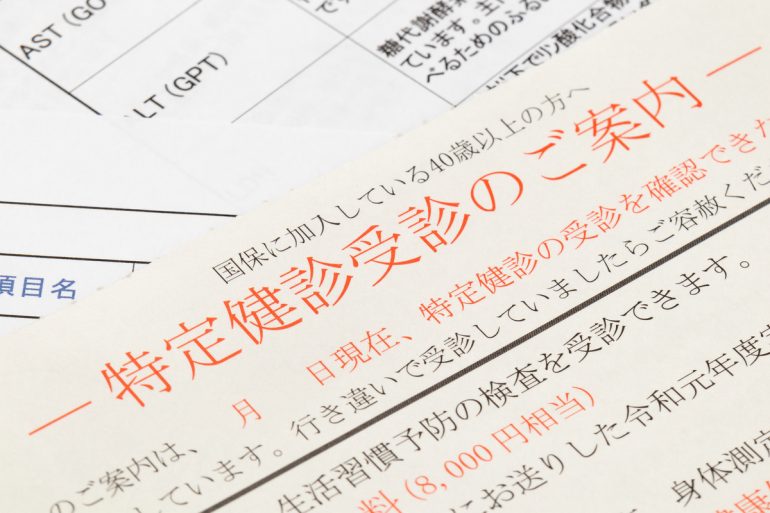 AST (GO
LT (GPT)
糖代謝酵素
ています。主に
べるためのふるい
以下でリン酸化合物
項目名
国保に加入している40歳以上の方へ
― 特定健診受診のご案内 ―
月 日現在、特定健診の受診を確認できた
のご案内は、
しています。行き違いで受診していましたらご容赦くだ
生活習慣予防の検査を受診できます。
料 (8,000円相当)
にお送りした令和元年度
身体測定
健康